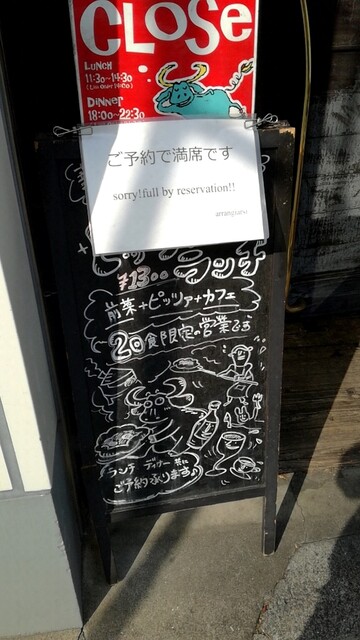 CLOSe
LUNCH
11:30~14:30
DINNER
18:00~22:30
ご予約で満席です
sorry!full by reservation!!
ランチ
¥1300
前菜+ピッツァ+カフェ
20食限定の営業です
ランチ ディナー 共に
ご予約承ります♪